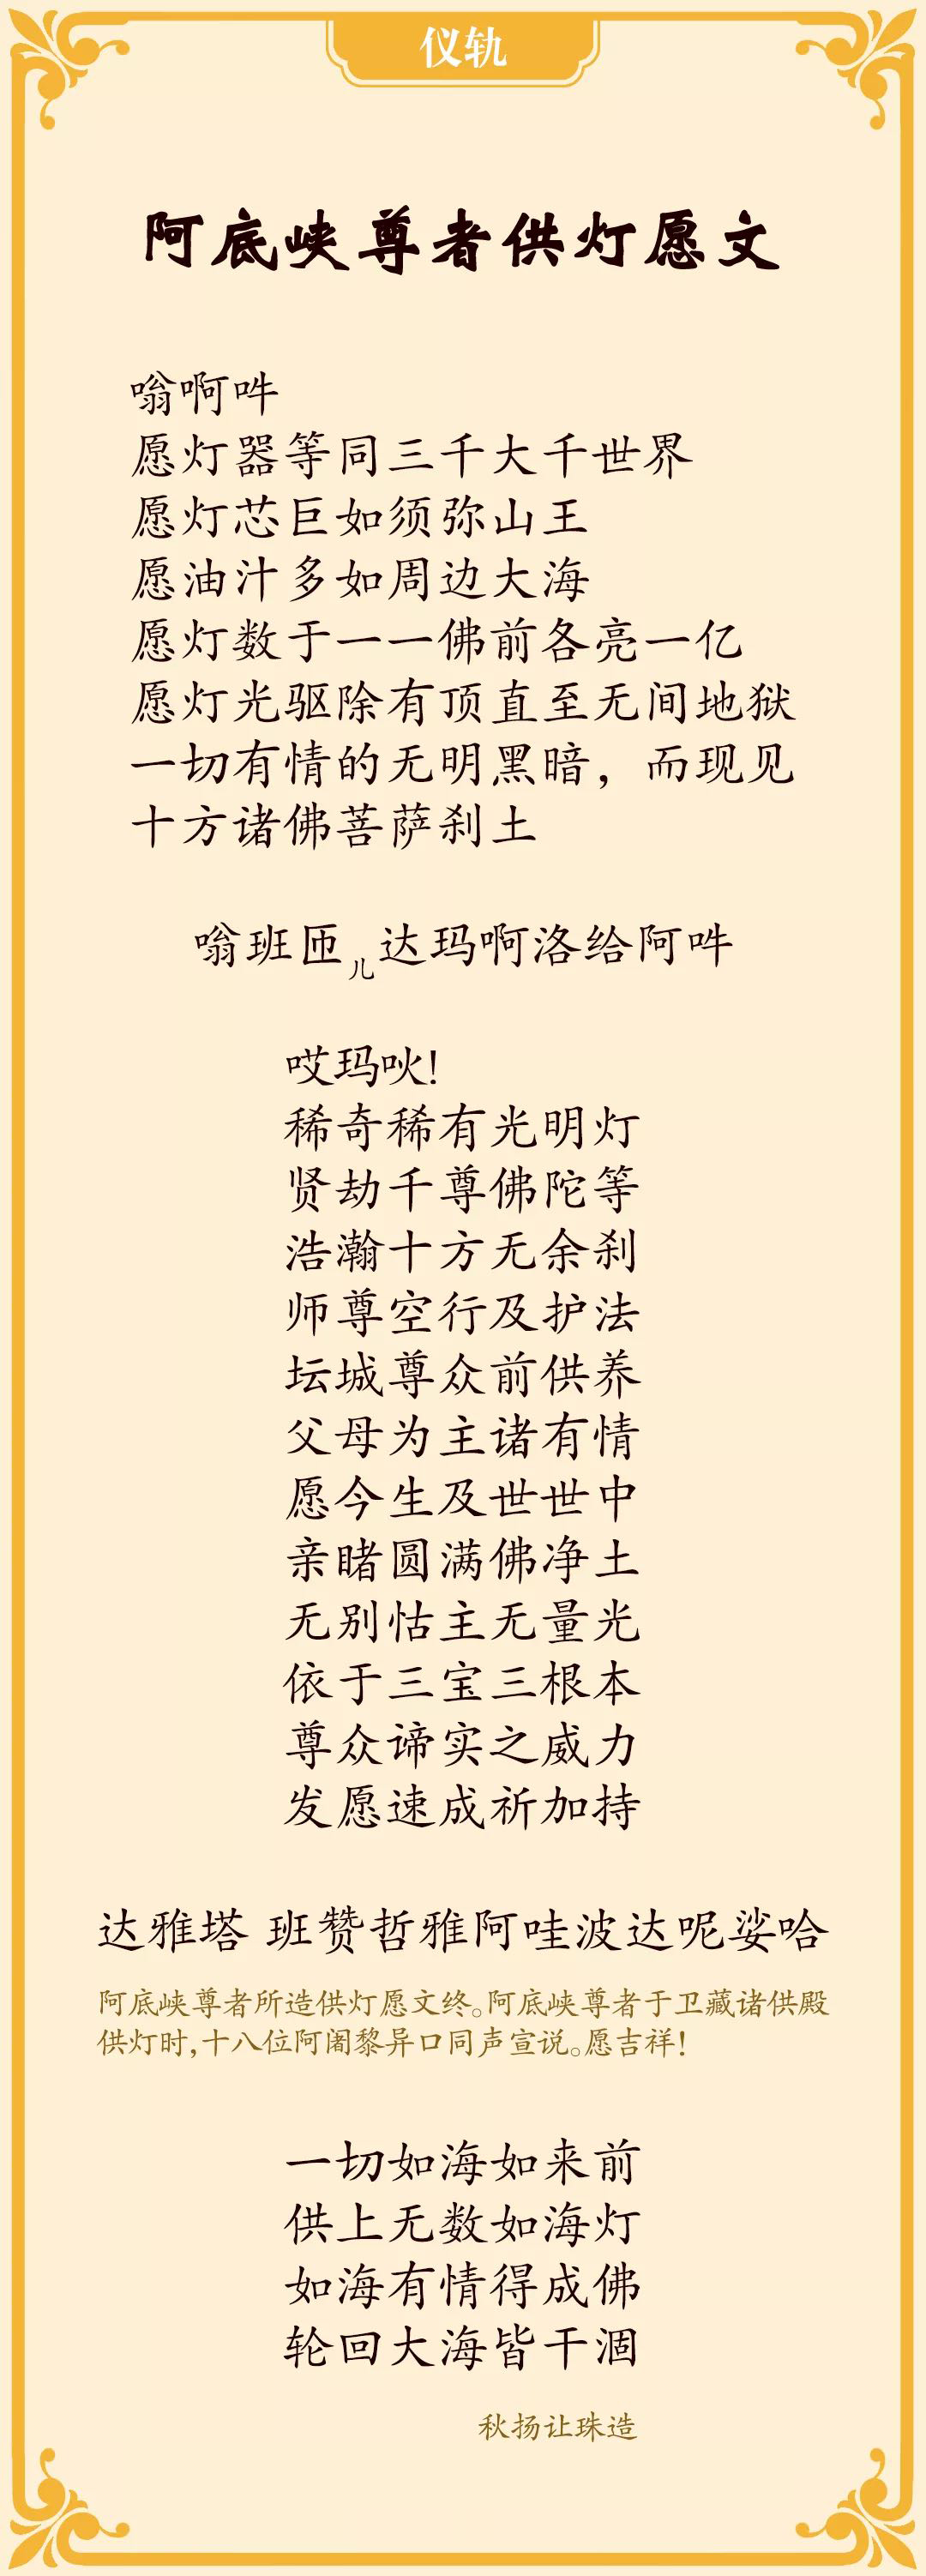 仪轨
阿底峡尊者供灯愿文
嗡啊吽
愿灯器等同三千大千世界
愿灯芯巨如须弥山王
愿油汁多如周边大海
愿灯数于一一佛前各亮一亿
愿灯光驱除有顶直至无间地狱
一切有情的无明黑暗，而现见
十方诸佛菩萨刹土
嗡班匝儿达玛啊洛给阿吽
哎玛吙！
稀奇稀有光明灯
贤劫千尊佛陀等
浩瀚十方无余刹
师尊空行及护法
坛城尊众前供养
父母为主诸有情
愿今生及世世中
亲睹圆满佛净土
无别怙主无量光
依于三宝三根本
尊众谛实之威力
发愿速成祈加持
达雅塔 班赞哲雅阿哇波达呢娑哈
阿底峡尊者所造供灯愿文终。阿底峡尊者于卫藏诸供殿
供灯时，十八位阿阇黎异口同声宣说。愿吉祥！
一切如海如来前
供上无数如海灯
如海有情得成佛
轮回大海皆干涸
秋扬让珠造